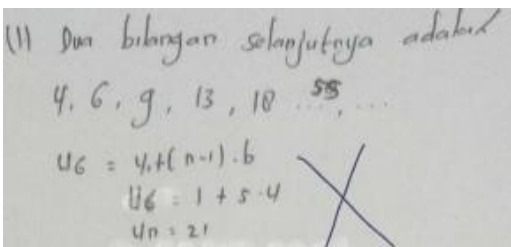 (1) Dua bilangan selanjutnya adalah
4, 6, 9, 13, 18 ... , ...
U6 = 4.+(n-1).b
U6 = 1 + 5.4
Un = 21